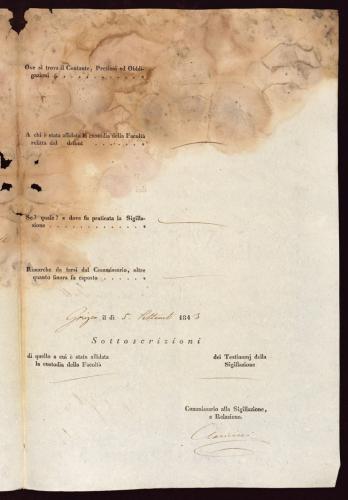 Ove si trova il Contante, Preziosi ed Obbli-
gazioni . . . . . . . . . . . "
A chi è stata affidata la custodia della Facoltà
relitta dal defont . . . . . . . "
Se? quale? e dove fu praticata la Sigilla-
zione . . . . . . . . . . . . "
Rimarche da farsi dal Commissario, oltre
quanto finora fu esposto . . . . . "
il dì 5. Settemb 1843
Sottoscrizioni
di quello a cui è stata affidata
la custodia della Facoltà
dei Testimonj della
Sigillazione
Commissario alla Sigillazione,
e Relazione.